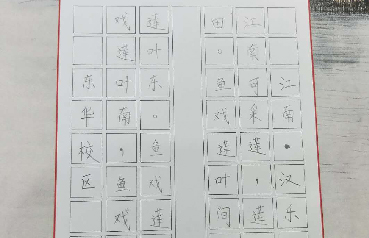 江南•汉乐
江南可采莲，莲
田。鱼戏莲叶间
莲叶东。鱼戏莲
戏莲叶南，鱼戏
东华校区